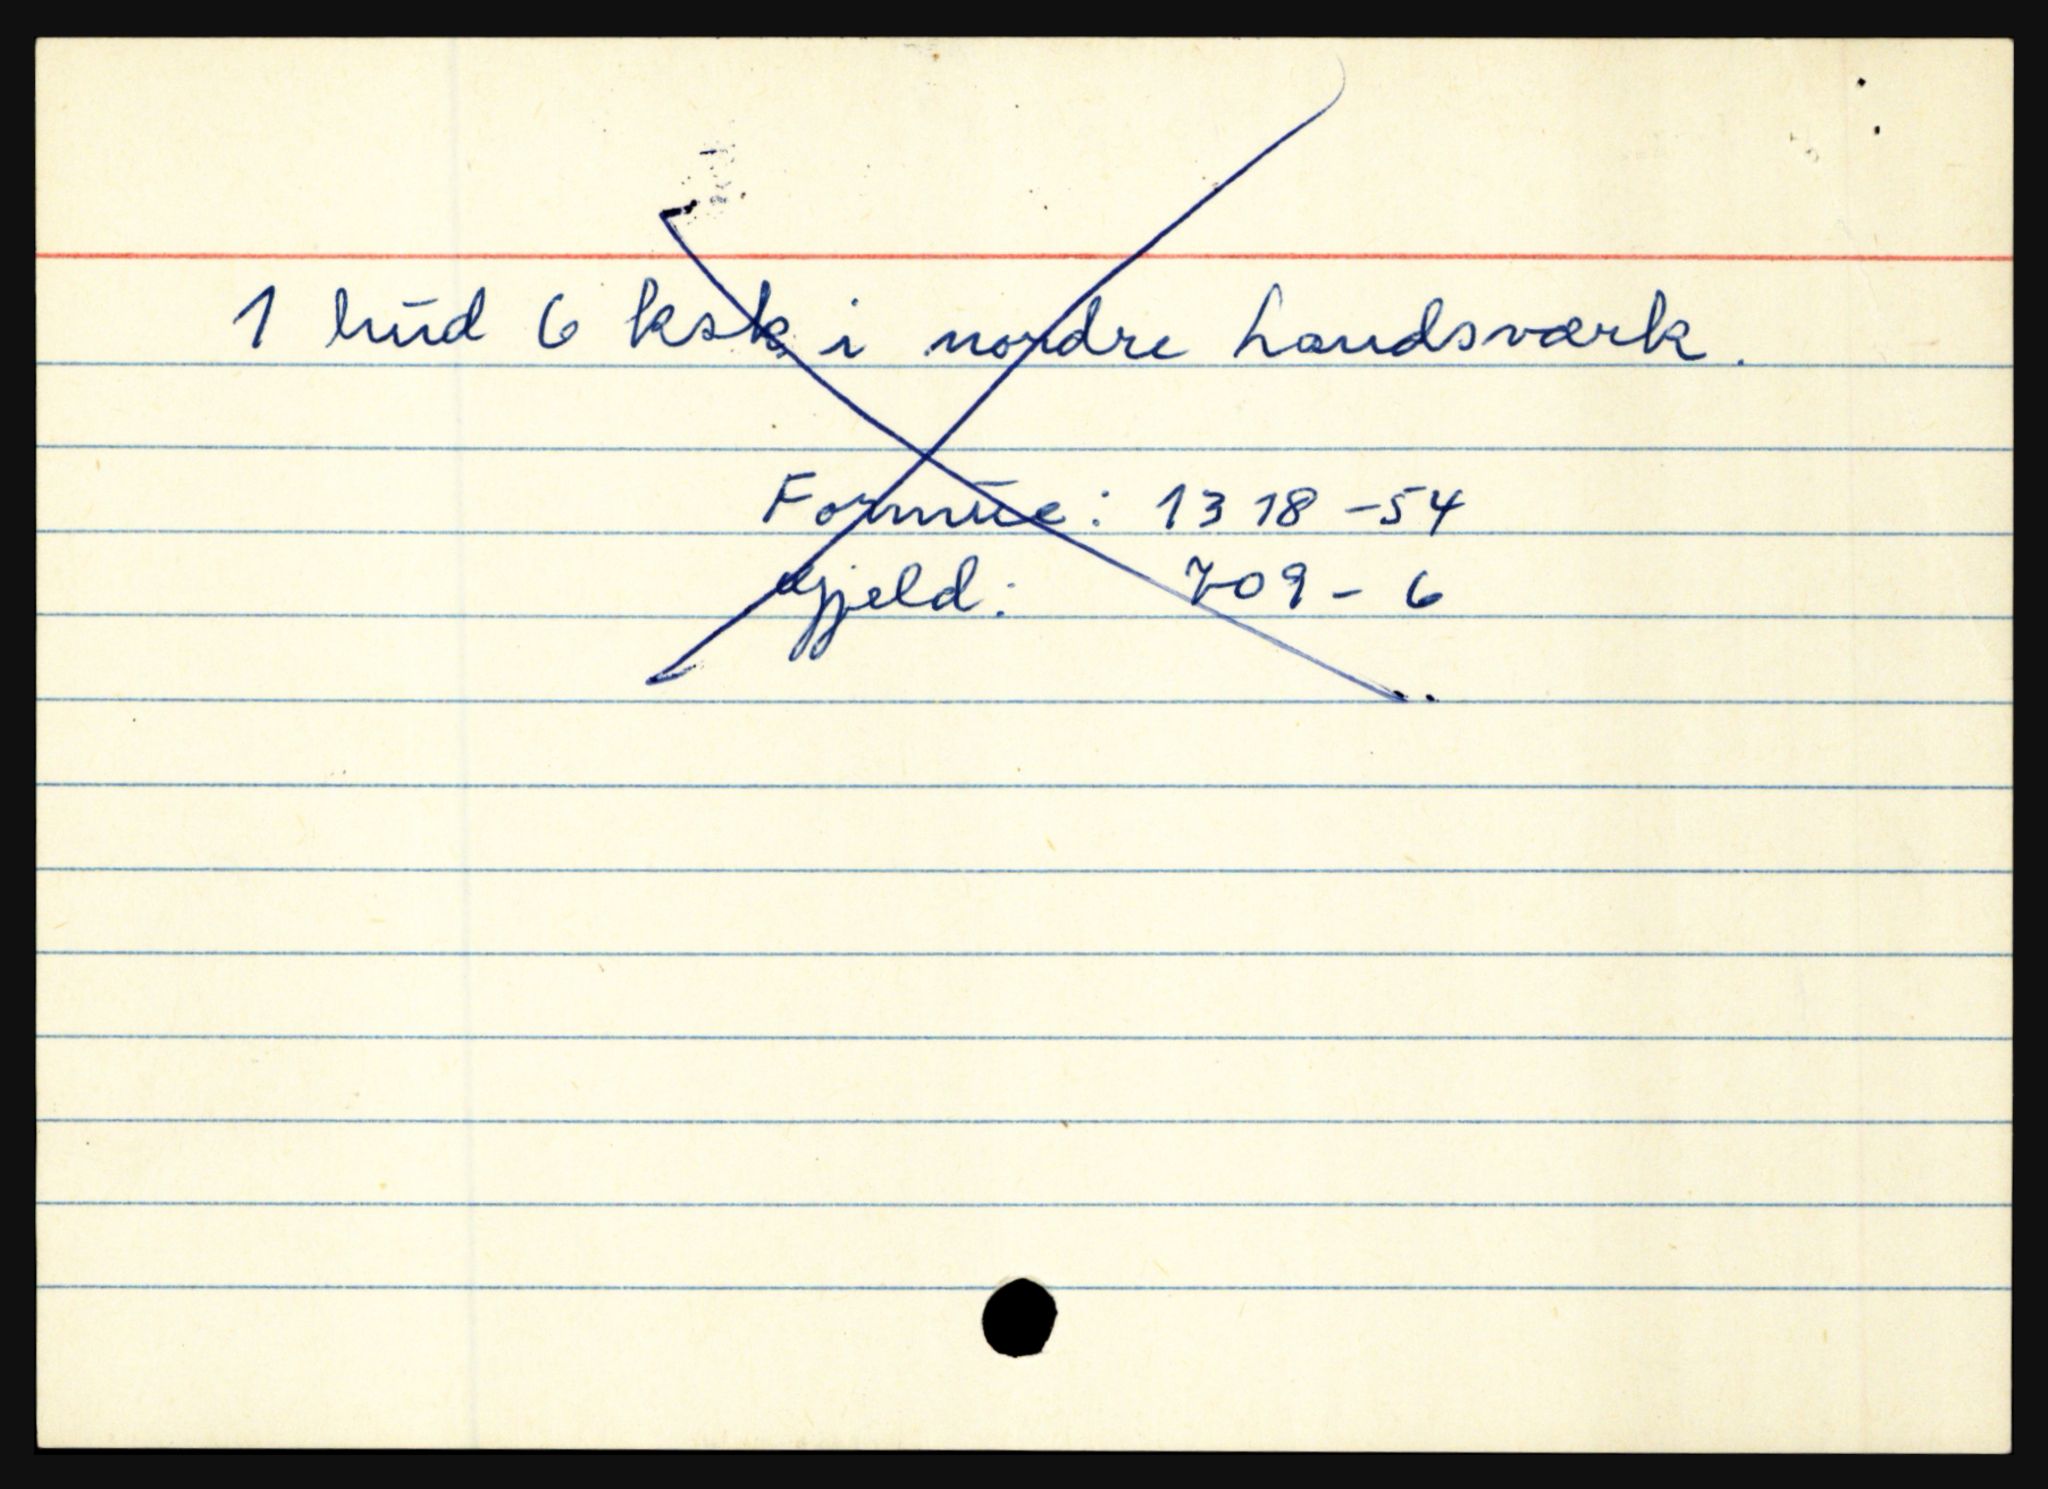 1 hud 6 ksk i nordre Landsværk.
Formue: 1318-54
Gjeld: 709-6